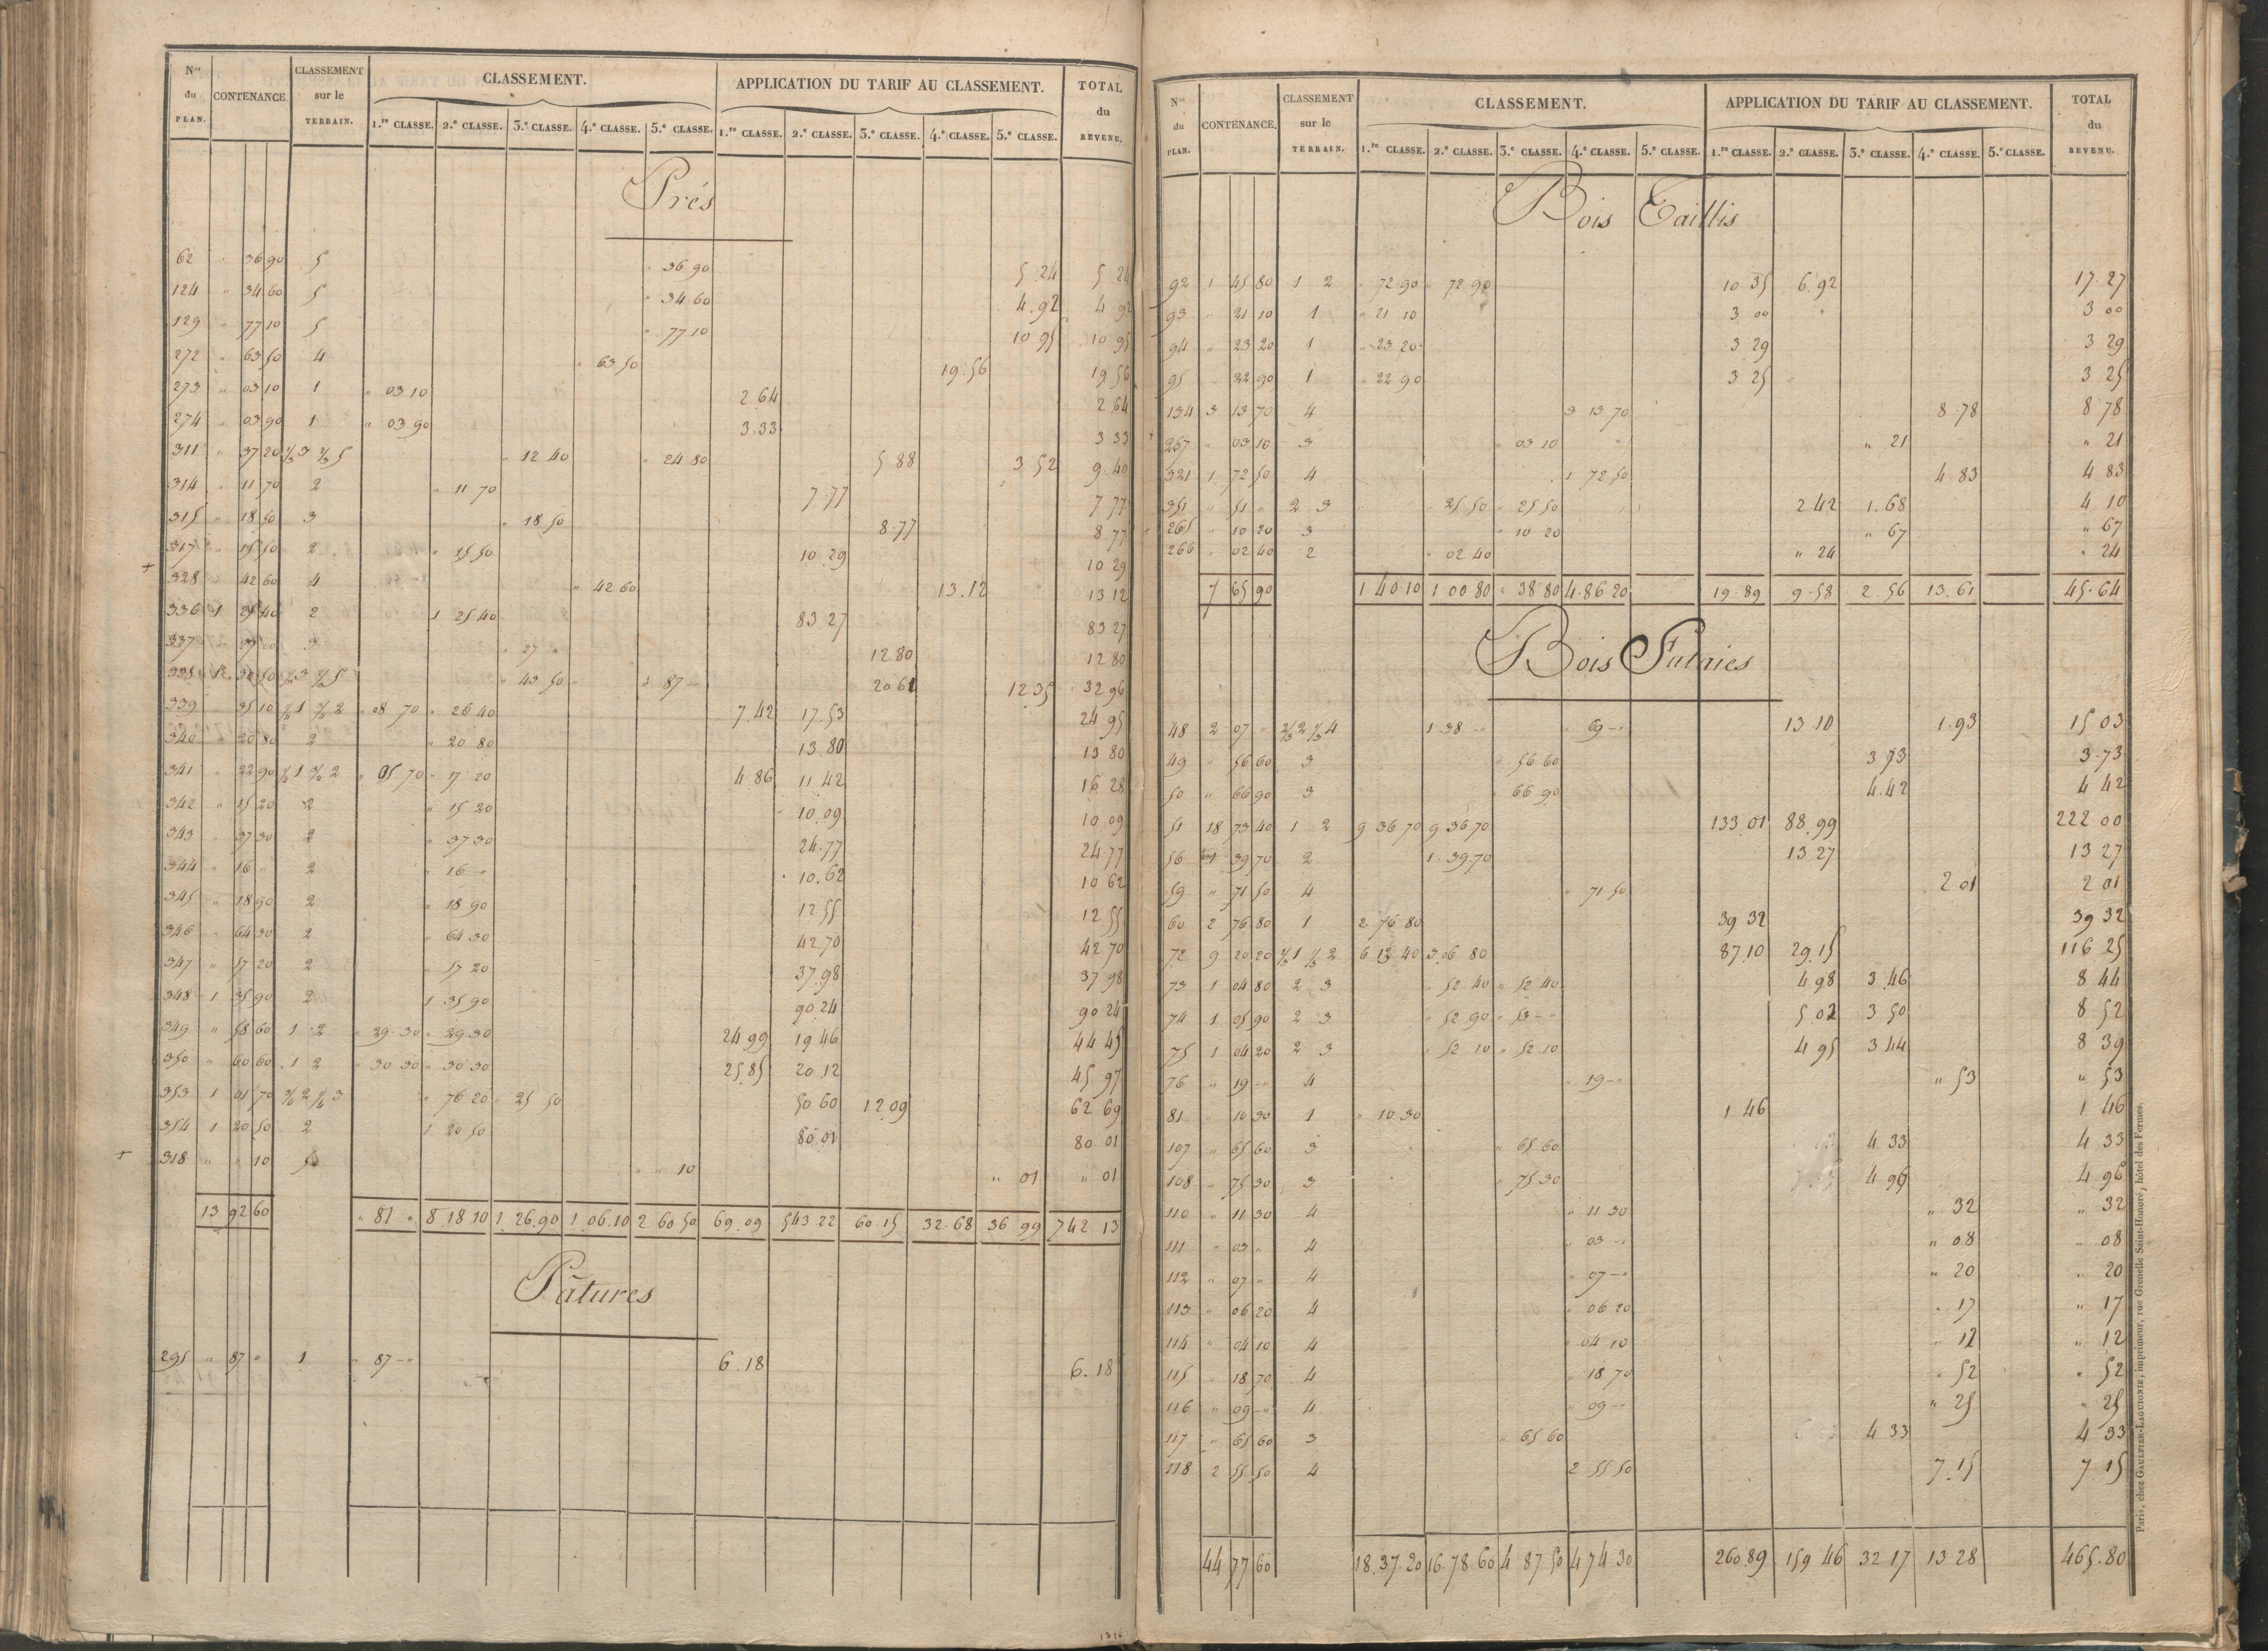 Nos du PLAN. CONTENANCE. CLASSEMENT sur le TERRAIN. CLASSEMENT. APPLICATION DU TARIF AU CLASSEMENT. TOTAL du REVENU.
1.re CLASSE. 2.e CLASSE. 3.e CLASSE. 4.e CLASSE. 5.e CLASSE. 1.re CLASSE. 2.e CLASSE. 3.e CLASSE. 4.e CLASSE. 5.e CLASSE.
Prés
62 " 36 90 5 " 36 90 5 24 5 24
124 " 34 60 5 " 34 60 4.92 4 92
129 " 77 10 5 " 77 10 10 95 10 95
272 " 63 50 4 " 63 50 19.56 19 56
273 " 03 10 1 " 03 10 2 64 2 64
274 " 03 90 1 " 03 90 3.33 3 33
311 " 37 20 1/3 3 2/3 5 " 12 40 " 24 80 5 88 3 52 9.40
314 " 11 70 2 " 11 70 7.77 7 77
315 " 18 50 3 " 18 50 8.77 8.77
317 " 15 50 2 " 15 50 10.29 10 29
+ 328 " 42 60 4 " 42 60 13.12 13 12
336 1 25 40 2 1 25 40 83.27 83 27
337 " 27 00 3 " 27 " 12 80 12 80
338 1 30 50 1/3 3 2/3 5 " 43 50 " 87 " 20 61 12 35 32 96
339 " 35 10 1/4 1 3/4 2 " 08 70 " 26 40 7.42 17.53 24 95
340 " 20 80 2 " 20 80 13.80 13 80
341 " 22 90 1/4 1 3/4 2 " 05 70 " 17 20 4 86 11 42 16 28
342 " 15 20 2 " 15 20 10.09 10 09
343 " 37 30 2 " 37 30 24.77 24 77
344 " 16 " 2 " 16 " 10.62 10 62
345 " 18 90 2 " 18 90 12 55 12 55
346 " 64 30 2 " 64 30 42.70 42 70
347 " 57 20 2 " 57 20 37.98 37 98
348 1 35 90 2 1 35 90 90 24 90 24
349 " 58 60 1 2 " 29 30 " 29 30 24 99 19 46 44 45
350 " 60 60 1 2 " 30 30 " 30 30 25.85 20.12 45 97
353 1 01 70 3/4 2 1/4 3 " 76 20 " 25 50 50 60 12.09 62 69
354 1 20 50 2 1 20 50 80 01 80 01
+ 318 " " 10 5 " " 10 " 01 " 01
13 92 60 " 81 " 8 18 10 1.26.90 1.06.10 2 60 50 69.09 543 22 60.15 32.68 36 99 742 13
Pâtures
295 " 87 " 1 " 87 " 6.18 6.18
Nos du PLAN. CONTENANCE. CLASSEMENT sur le TERRAIN. CLASSEMENT. APPLICATION DU TARIF AU CLASSEMENT. TOTAL du REVENU.
1.re CLASSE. 2.e CLASSE. 3.e CLASSE. 4.e CLASSE. 5.e CLASSE. 1.re CLASSE. 2.e CLASSE. 3.e CLASSE. 4.e CLASSE. 5.e CLASSE.
Bois Taillis
92 1 45 80 1 2 " 72 90 " 72 90 10 35 6.92 17.27
93 " 21 10 1 " 21 10 3 00 3 00
94 " 23 20 1 " 23 20 3 29 3 29
95 " 22 90 1 " 22 90 3 25 3 25
134 3 13 70 4 3 13 70 8.78 8.78
267 " 03 10 3 " 03 10 " 21 " 21
321 1 72 50 4 1 72 50 4 83 4 83
351 " 51 " 2 3 " 25 50 " 25 50 2 42 1.68 4 10
265 " 10 20 3 " 10 20 " 67 " 67
266 " 02 40 2 " 02 40 " 24 " 24
7 65 90 1 40.10 1 00 80 " 38 80 4.86 20 19.89 9.58 2.56 13.61 45.64
Bois Futaies
48 2 07 " 2/3 2 1/3 4 1.38 " " 69 " 13.10 1.93 15 03
49 " 56 60 3 " 56 60 3 73 3.73
50 " 66 90 3 " 66 90 4.42 4 42
51 18 73 40 1 2 9 36 70 9 36 70 133.01 88.99 222 00
56 1 39 70 2 1.39.70 13 27 13 27
59 " 71 50 4 " 71 50 2 01 2 01
60 2 76 80 1 2 76 80 39 32 39 32
72 9 20 20 2/3 1 1/3 2 6 13 40 3.06 80 87.10 29.15 116 25
73 1 04 80 2 3 " 52 40 " 52 40 4 98 3.46 8 44
74 1 05 90 2 3 " 52 90 " 53 " 5.02 3 50 8 52
75 1 04 20 2 3 " 52 10 " 52.10 4 95 3 44 8 39
76 " 19 " 4 " 19 " " 53 " 53
81 " 10 30 1 " 10.30 1 46 1 46
107 " 65 60 3 " 65 60 4 33 4 33
108 " 75 30 3 " 75 30 4 96 4 96
110 " 11 30 4 " 11 30 " 32 " 32
111 " 03 " 4 " 03 " " 08 " 08
112 " 07 " 4 " 07 " " 20 " 20
113 " 06 20 4 " 06 20 " 17 " 17
114 " 04 10 4 " 04 10 " 12 " 12
115 " 18 70 4 " 18 70 " 52 " 52
116 " 09 " 4 " 09 " " 25 " 25
117 " 65 60 3 " 65 60 4 33 4 33
118 2 55 50 4 2 55 50 7.15 7.15
44 77 60 18.37.20 16.78 60 4 87 50 4 74 30 260.89 159 46 32 17 13 28 465.80
Paris, chez GAULTIER-LAGUIONIE, imprimeur, rue Grenelle Saint-Honoré, hôtel des Fermes.